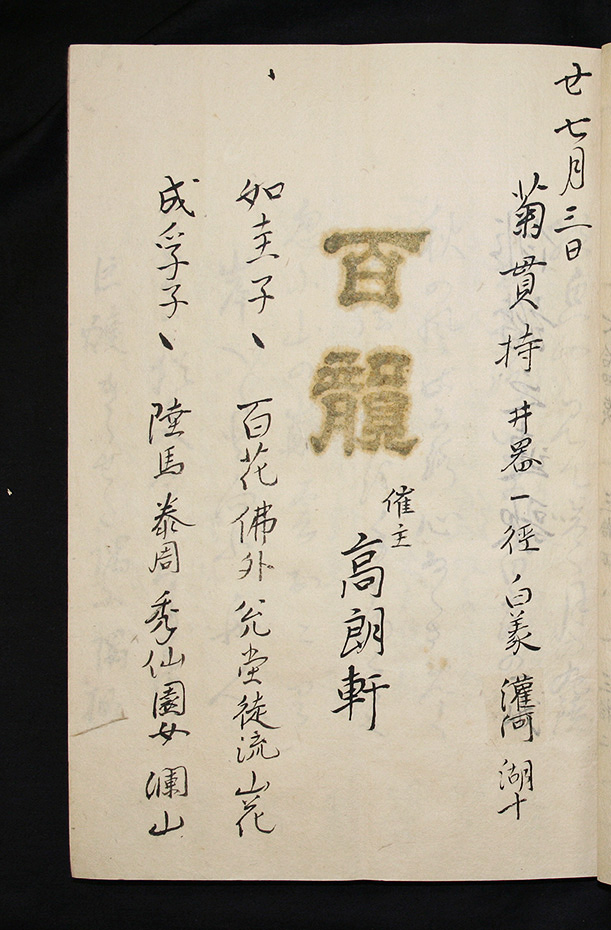 廿七月三日
菊貫持 井器 一徑 白義 灌河 湖十
百韻
催主
高朗軒
如圭子、百花 佛外 兊堂 徒流 山花
成孚子、陸馬 泰周 秀仙 園女 瀾山